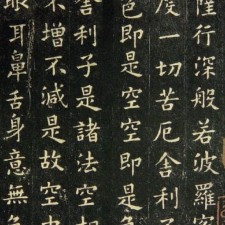 隆行深般若波羅密
度一切苦厄舍利子
色即是空空即是色
舍利子是諸法空相
不增不減是故空中
眼耳鼻舌身意無色